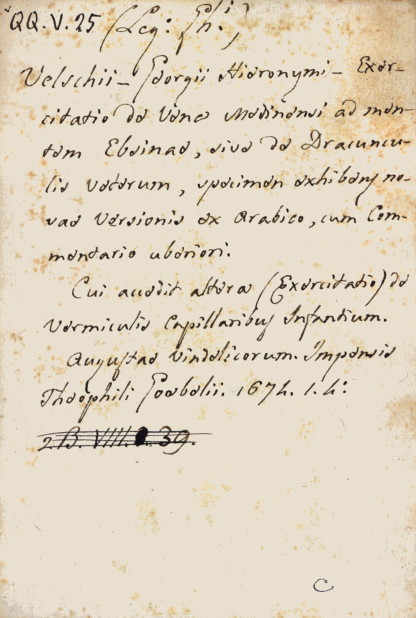 QQ. V. 25 (Leg: Ph:)
Velschii - Georgii Hieronymi - Exer-
citatio de Vena Medinensi ad men-
tem Ebsinae, sive de Dracuncu-
lis veterum, specimen exhibens no-
vae versionis ex Arabico, cum Com-
mentario uberiori.
Cui accedit altera (Exercitatio) de
Vermiculis Capillaribus Infantium.
Augustae Vindelicorum. Impensis
Theophili Goebelii. 1674. 1. 4:
2 B. VIII. 39.
C